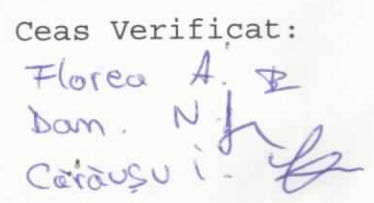 Ceas Verificat:
Florea A.
Dan. N.
Cărăuşu i.